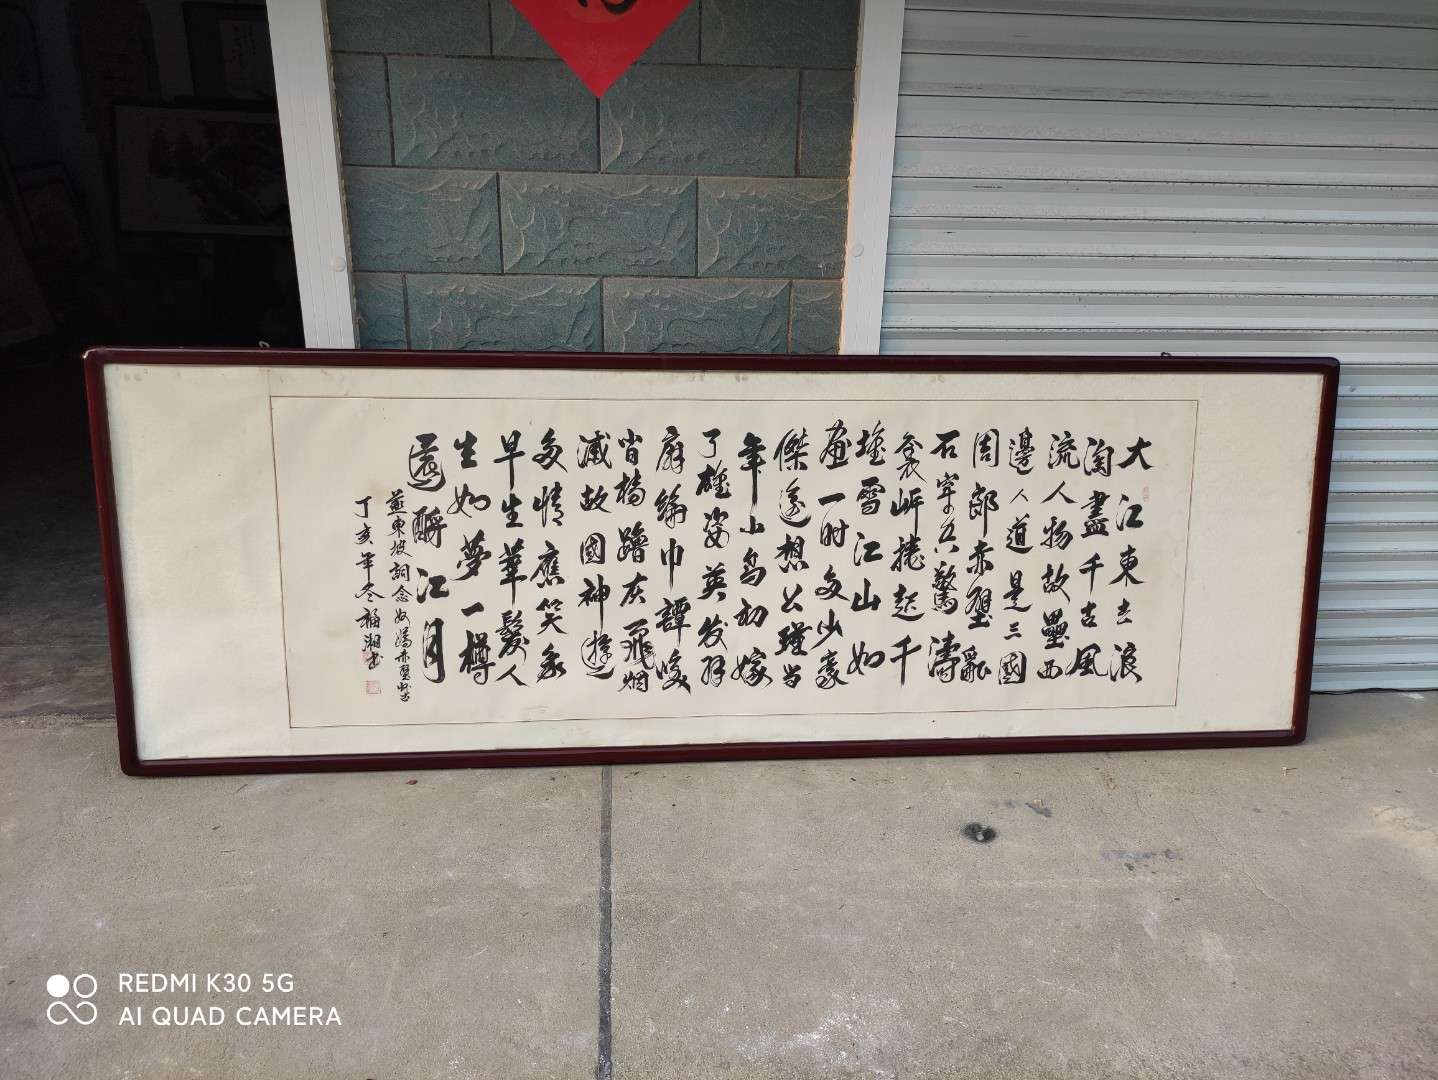 大江東去浪
淘盡千古風
流人物故壘西
邊人道是三國
周郎赤壁亂
石穿空驚濤
裂岸捲起千
堆雪江山如
畫一時多少豪
傑遙想公瑾當
年小喬初嫁
了雄姿英发羽
扇綸巾譚
檣櫓灰飛烟
滅故國神遊
多情應笑我
早生華髮人
生如夢一樽
還酹江月
蘇東坡詞念奴嬌赤壁懷古
丁亥年冬福湘书
REDMI K30 5G
AI QUAD CAMERA